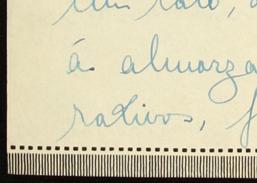 un rato,
ás almorza
rativos,